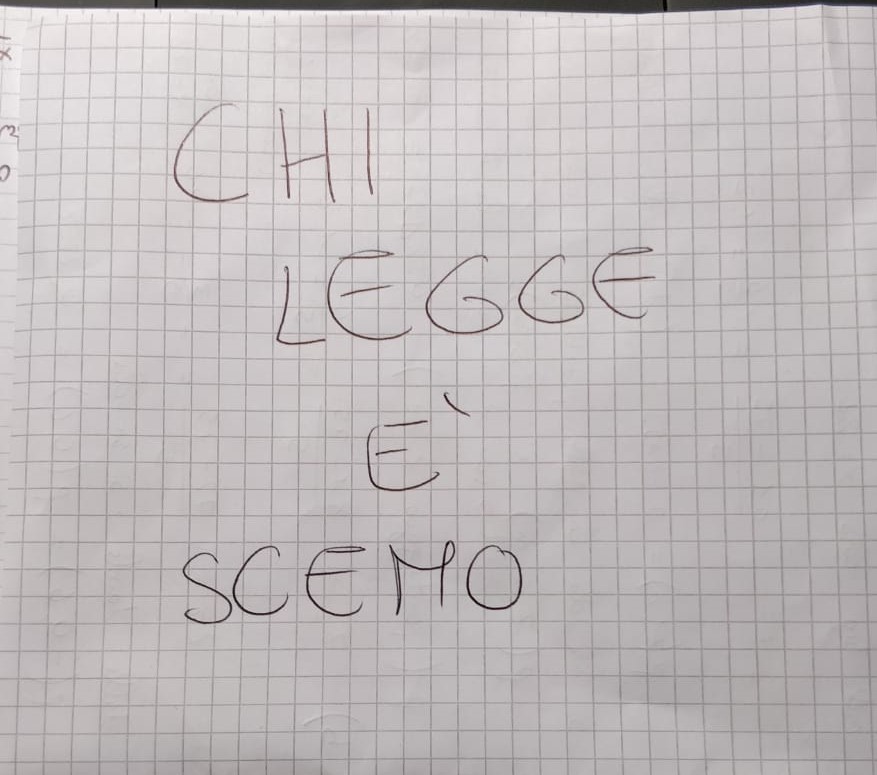 CHI
LEGGE
E'
SCEMO